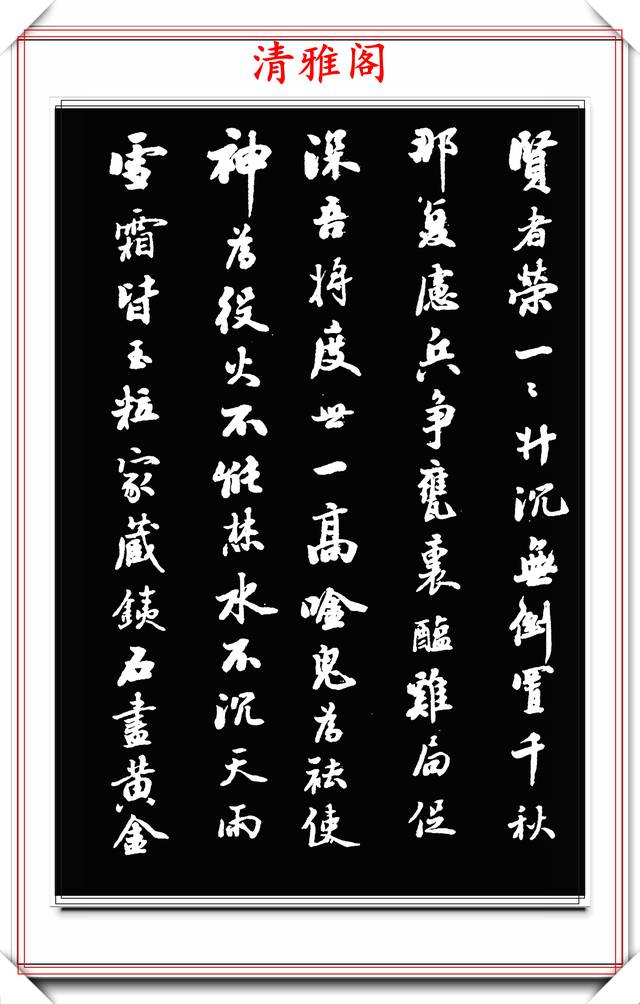 清雅阁
賢者榮一〻升沉無倒置千秋
那复慮兵爭甕裏醯雞局促
深吾將度世一高唫鬼為祛使
神為役火不能焚水不沉天雨
雪霜皆玉粒家藏銕石盡黄金